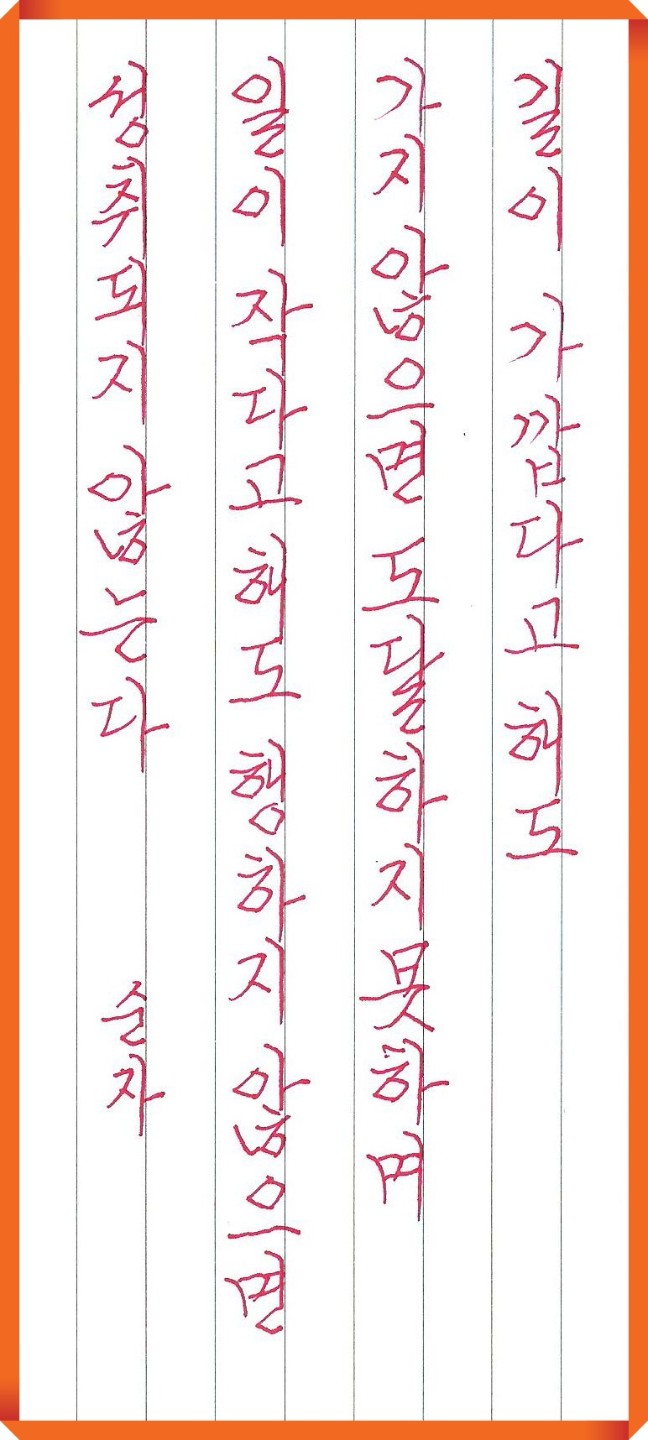 길이 가깝다고 해도
가지 않으면 도달하지 못하며
일이 작다고 해도 행하지 않으면
성취되지 않는다 순자